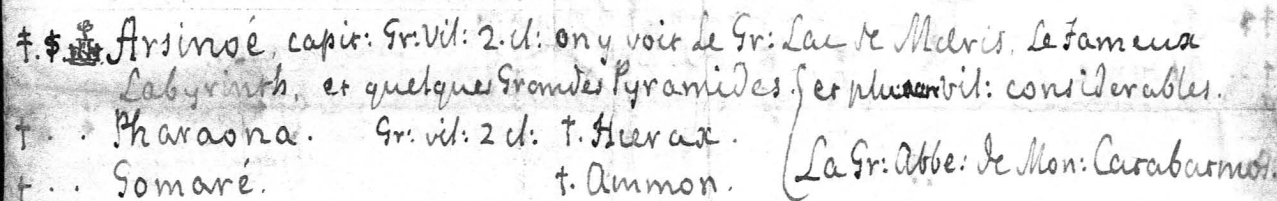 ‡. $. Arsinoé, capit: Gr: Vil: 2. cl: on y voit Le Gr: Lac de Mœris, Le Fameux
Labyrinth, et quelques Grandes Pyramides. { et vil: considerables.
† . . Pharaona. Gr: vil: 2 cl: †. Hierax.
La Gr: Abbe: de Mon: Carabarmos.
† . . Gomaré. †. Ammon.